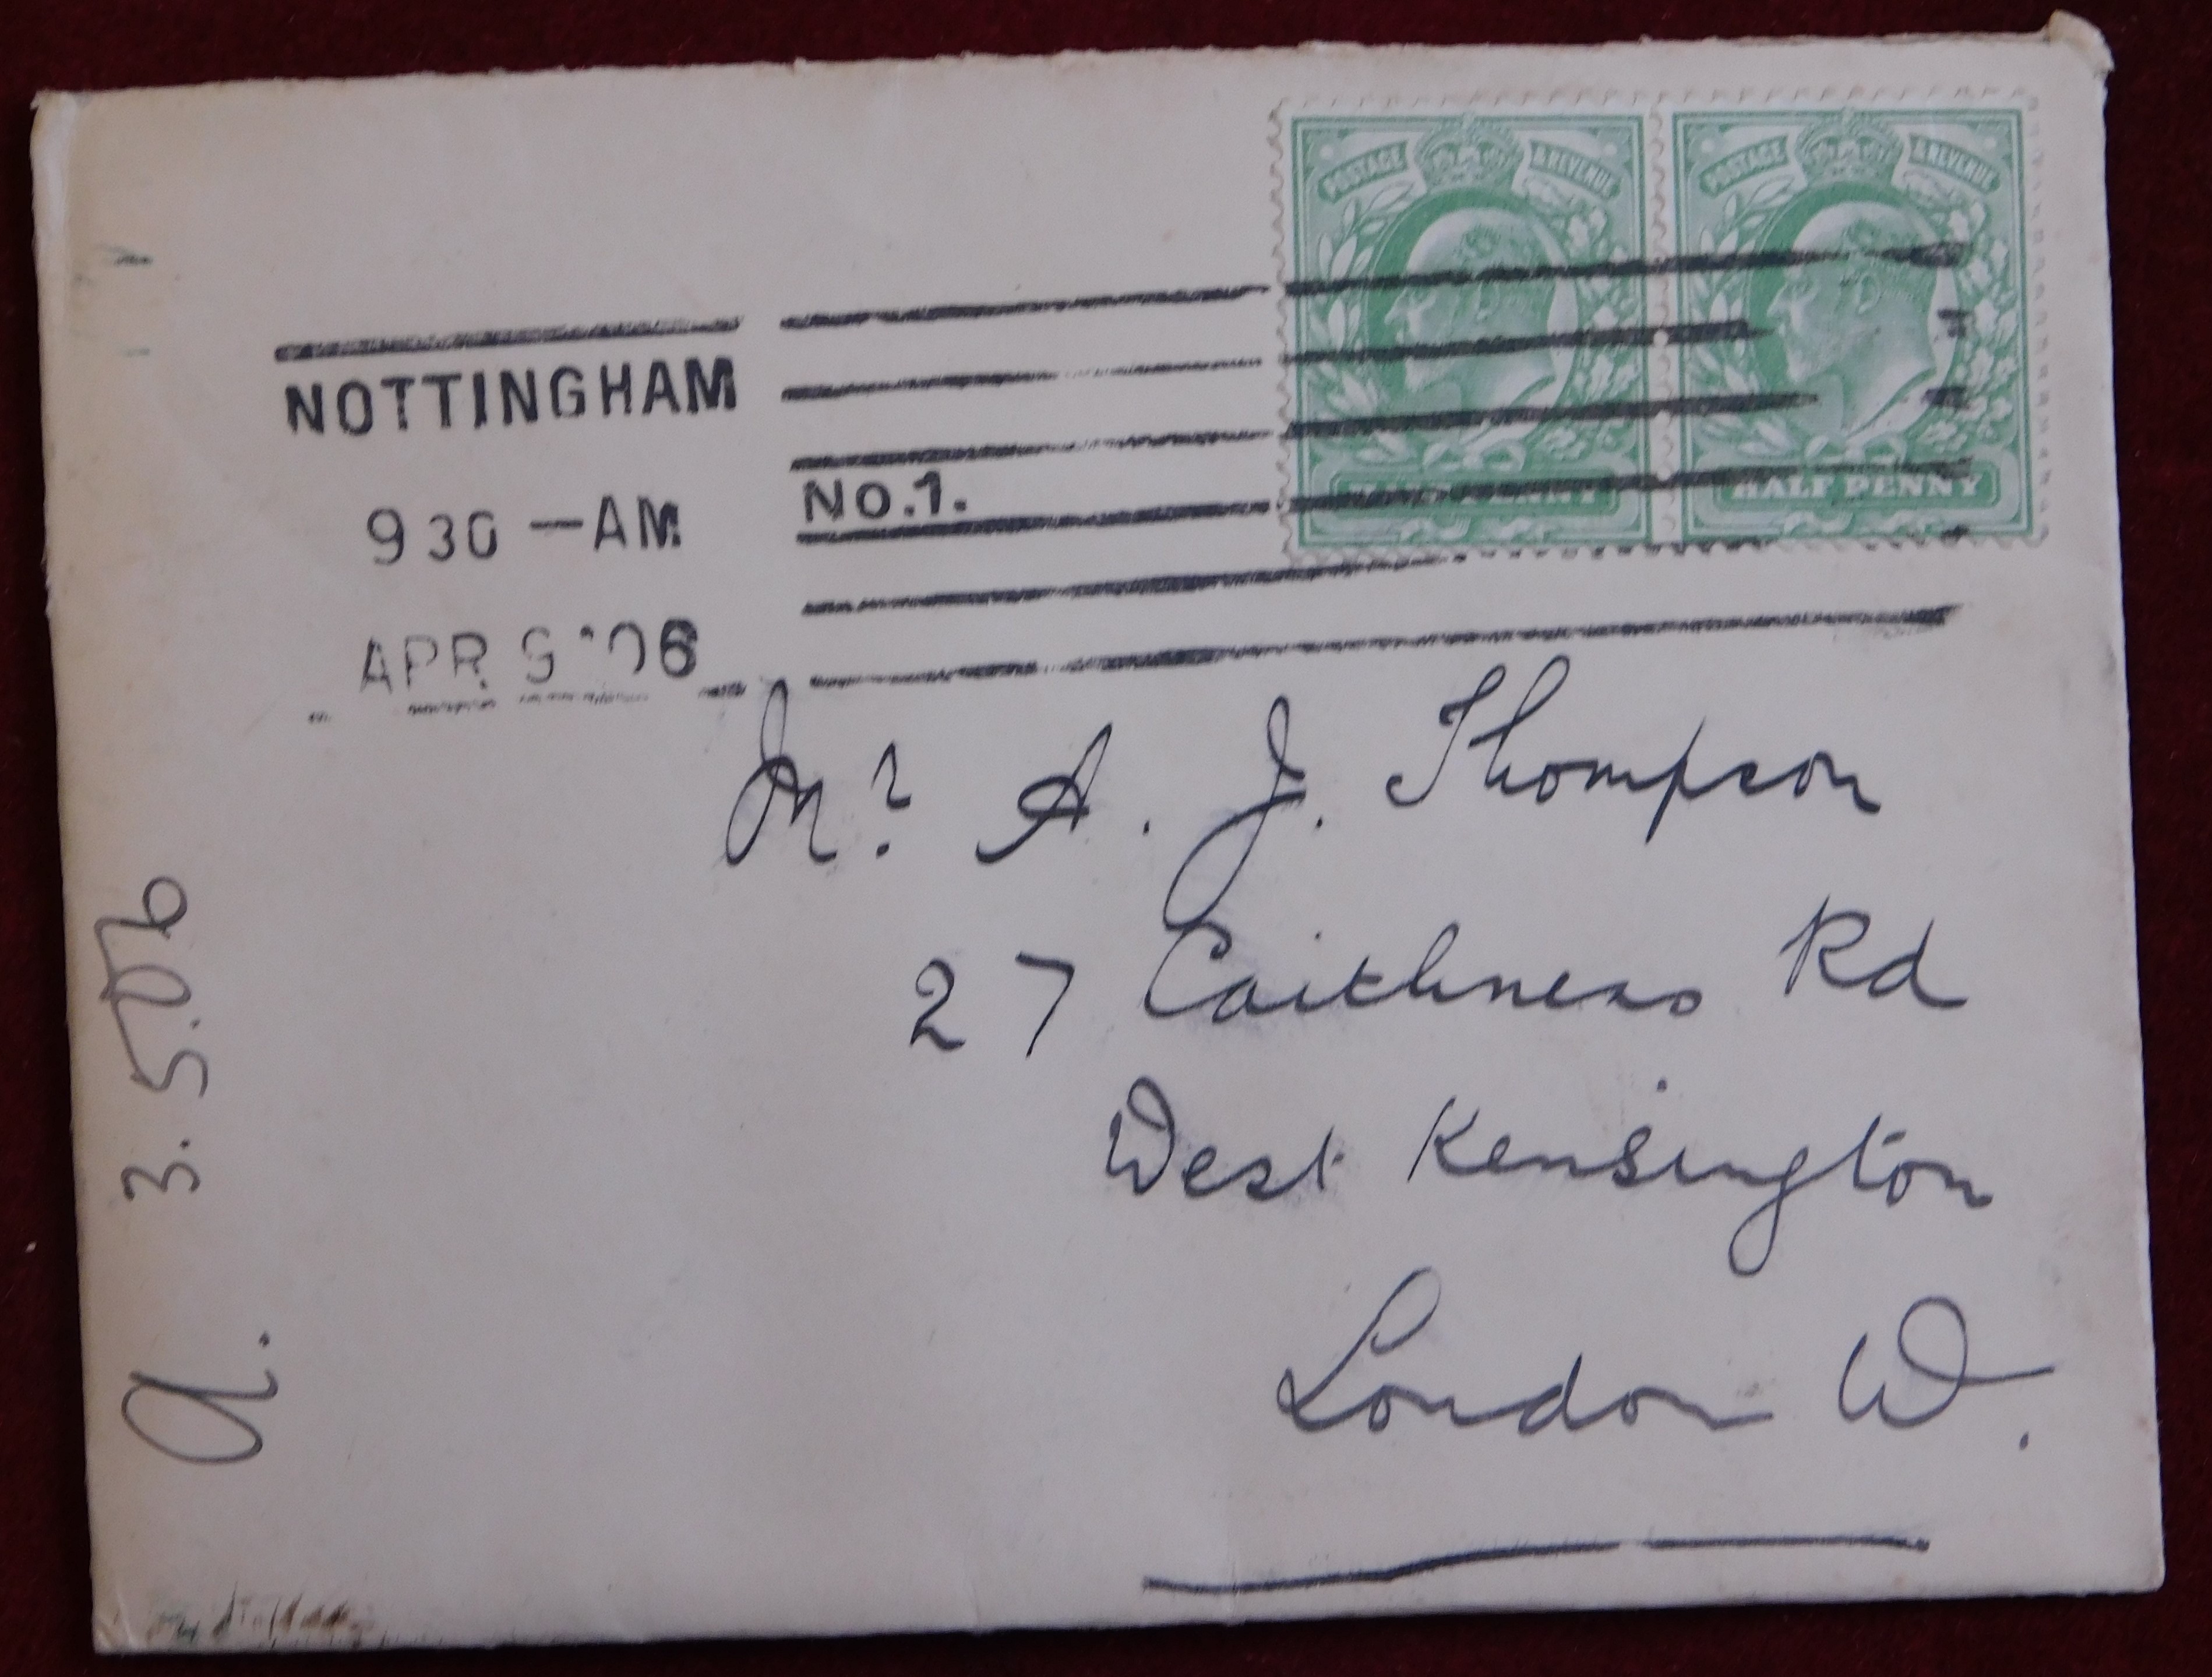 POSTAGE & REVENUE POSTAGE & REVENUE
HALF PENNY HALF PENNY
NOTTINGHAM
9 30 — AM
No.1.
APR 9 '06
Mr. A. J. Thompson
27 Caithness Rd
West Kensington
London W.
a. 3.5.06